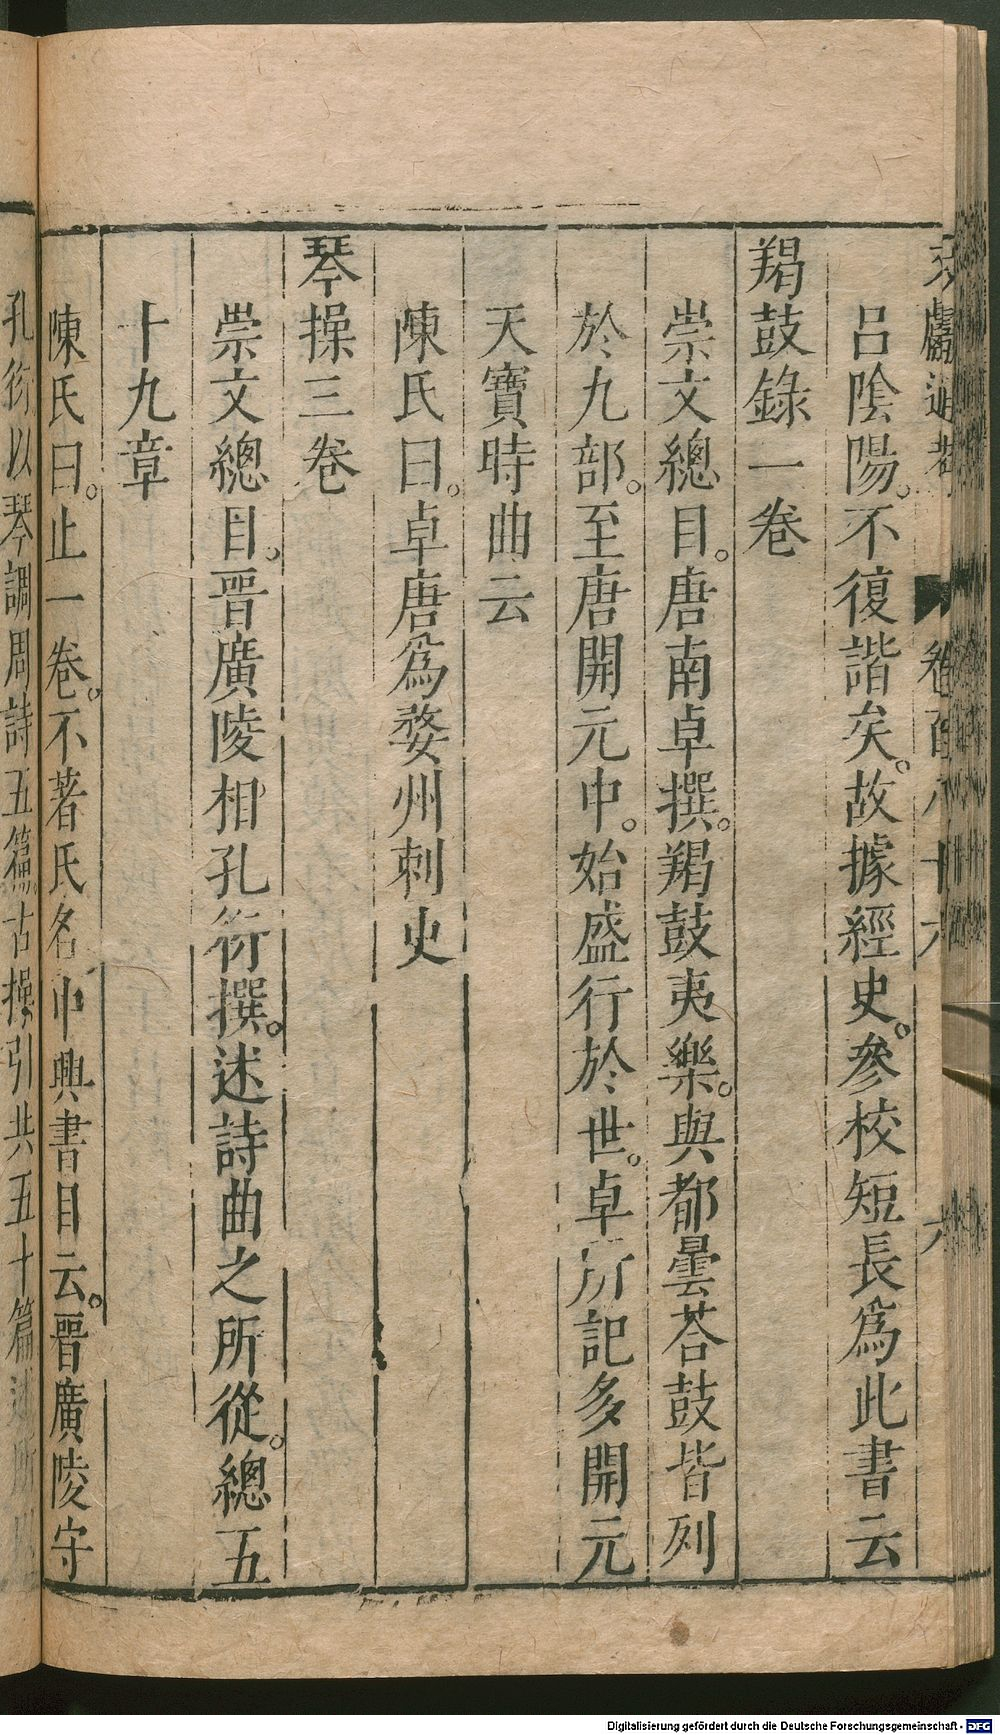 文獻通考 卷百八十六 六
呂陰陽。不復諧矣。故據經史。參校短長爲此書云
羯鼓錄一卷
崇文總目。唐南卓撰。羯鼓夷樂。與都曇荅鼓皆列
於九部。至唐開元中。始盛行於世。卓所記多開元
天寶時曲云
陳氏曰。卓唐爲婺州刺史
琴操三卷
崇文總目。晋廣陵相孔衍撰。述詩曲之所從。總五
十九章
陳氏曰。止一卷。不著氏名中興書目云。晋廣陵守
孔衍以琴調周詩五篇。古操引共五十篇述所以
Digitalisierung gefördert durch die Deutsche Forschungsgemeinschaft - DFG